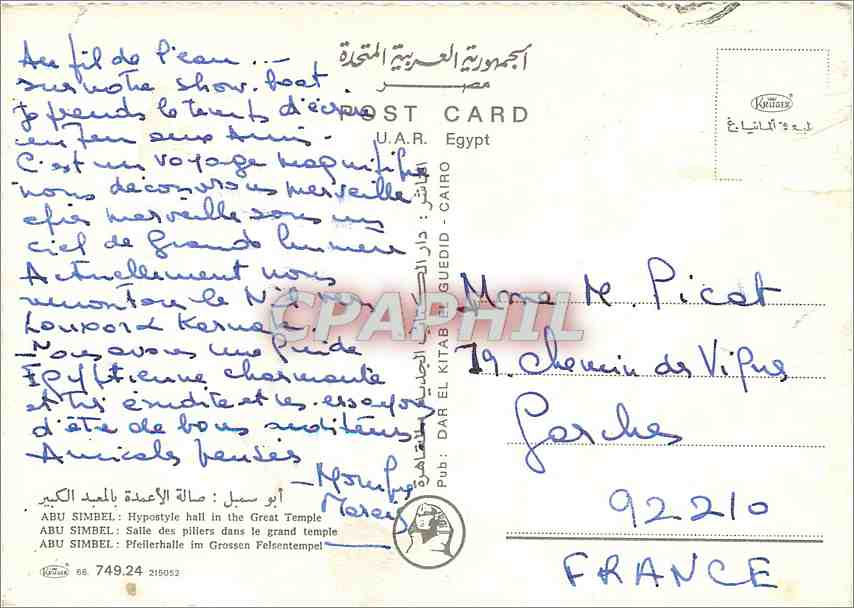 Au fil de l'eau ...
sur notre show-boat
je prends le temps d'écrire
aux Amis.
C'est un voyage magnifique
nous découvrons merveille
après merveille sous un
ciel de grande lumière
Actuellement nous
remontons le Nil vers
Louxor & Karnak.
Nous avons une guide
Egyptienne charmante
et très érudite et essayons
d'être de bons auditeurs
Amicales pensées
الجمهورية العربية المتحدة
مصر
POST CARD
U.A.R. Egypt
KRÜGER
الناشر : دار الكتاب الجديد بالقاهرة
Pub: DAR EL KITAB EL GUEDID - CAIRO
CPAPHIL
Mme M. Picot
79. Chemin des Vignes
Garches
92210
FRANCE
أبو سمبل : صالة الأعمدة بالمعبد الكبير
ABU SIMBEL: Hypostyle hall in the Great Temple
ABU SIMBEL: Salle des piliers dans le grand temple
ABU SIMBEL: Pfeilerhalle im Grossen Felsentempel
KRÜGER 66. 749.24 215052